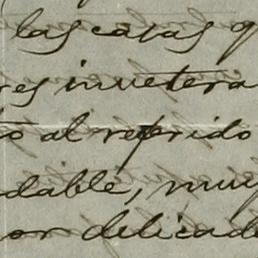 las casas q
res invetera
o al referido
dable, muy
or delicad